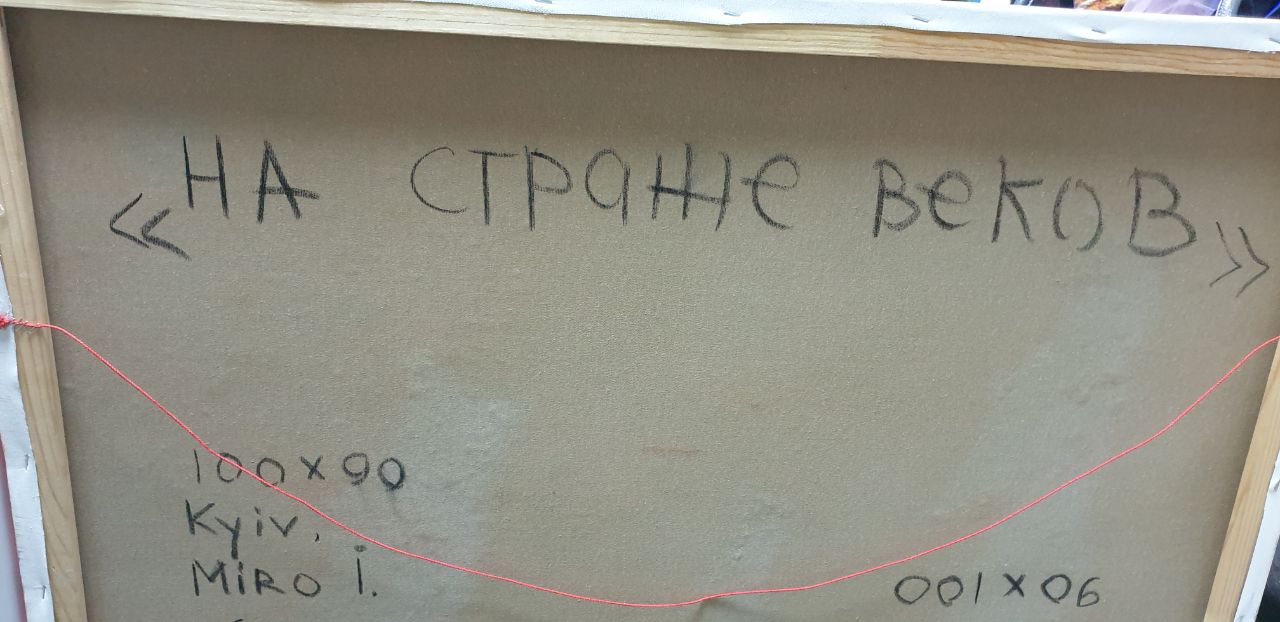 «НА СТРАЖЕ ВЕКОВ»
100 x 90
Kyiv,
MiRO I.
001 x 06